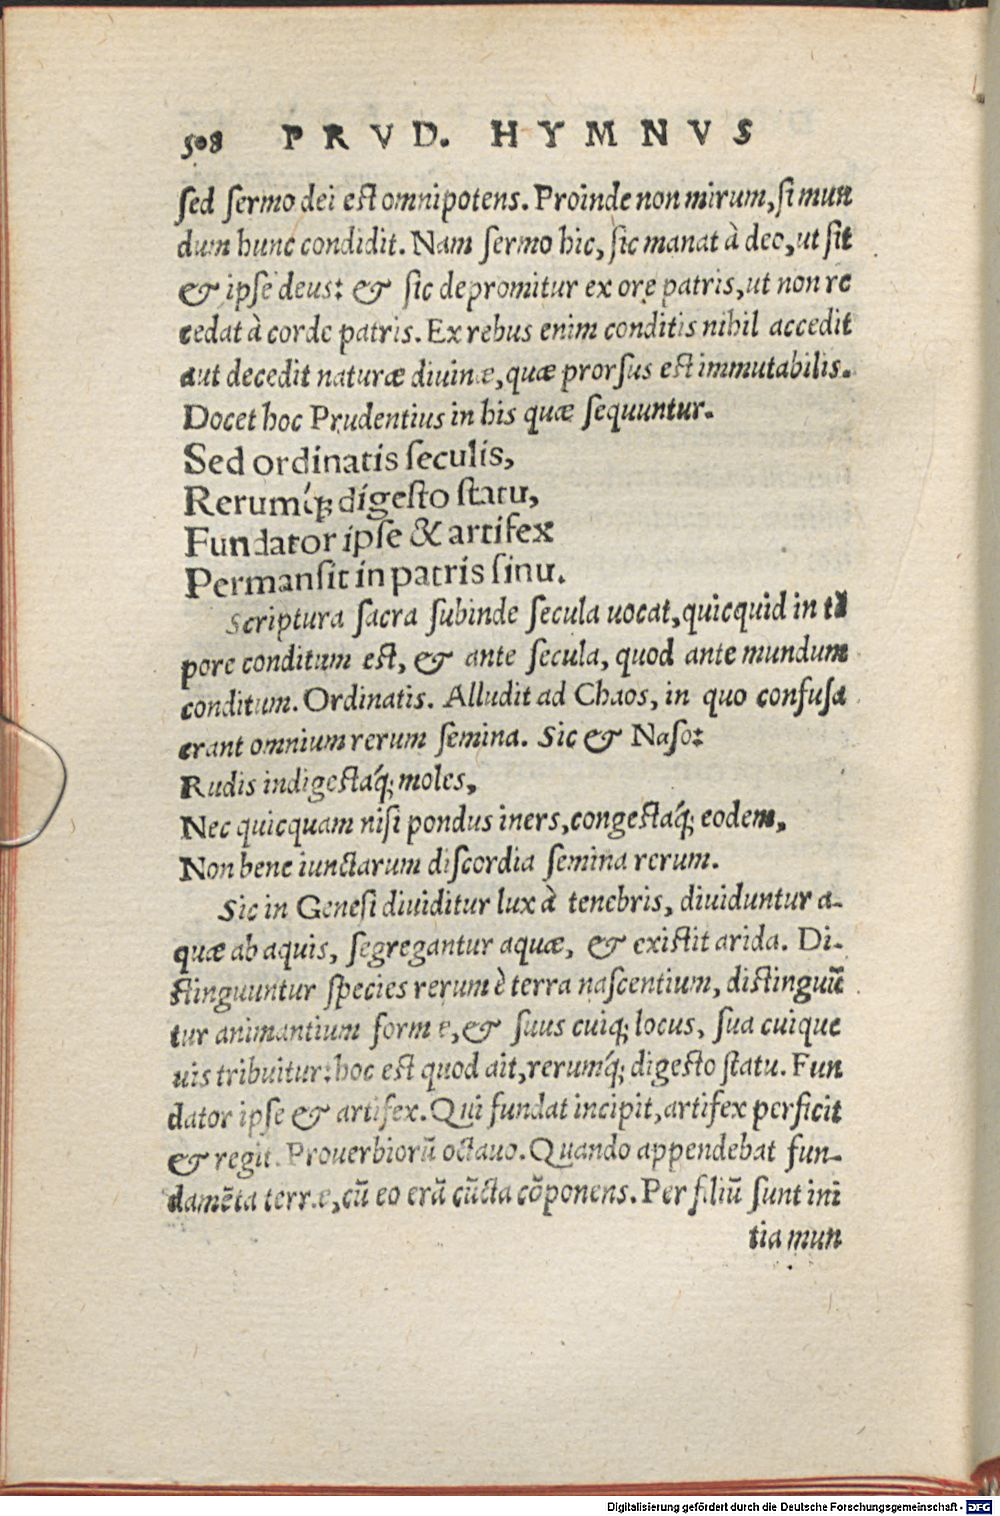 508 PRVD. HYMNVS
sed sermo dei est omnipotens. Proinde non mirum, si mun
dum hunc condidit. Nam sermo hic, sic manat à deo, ut sit
& ipse deus: & sic depromitur ex ore patris, ut non re
cedat à corde patris. Ex rebus enim conditis nihil accedit
aut decedit naturæ diuinæ, quæ prorsus est immutabilis.
Docet hoc Prudentius in his quæ sequuntur.
Sed ordinatis seculis,
Rerumq́; digesto statu,
Fundator ipse & artifex
Permansit in patris sinu.
Scriptura sacra subinde secula uocat, quicquid in tē
pore conditum est, & ante secula, quod ante mundum
conditum. Ordinatis. Alludit ad Chaos, in quo confusa
erant omnium rerum semina. Sic & Naso:
Rudis indigestaq́; moles,
Nec quicquam nisi pondus iners, congestaq́; eodem,
Non bene iunctarum discordia semina rerum.
Sic in Genesi diuiditur lux à tenebris, diuiduntur a-
quæ ab aquis, segregantur aquæ, & existit arida. Di-
stinguuntur species rerum è terra nascentium, distinguū
tur animantium formæ, & suus cuiq; locus, sua cuique
uis tribuitur: hoc est quod ait, rerumq́; digesto statu. Fun
dator ipse & artifex. Qui fundat incipit, artifex perficit
& regit. Prouerbiorū octauo. Quando appendebat fun-
damēta terræ, cū eo erā cūcta cōponens. Per filiū sunt ini
tia mun
Digitalisierung gefördert durch die Deutsche Forschungsgemeinschaft - DFG